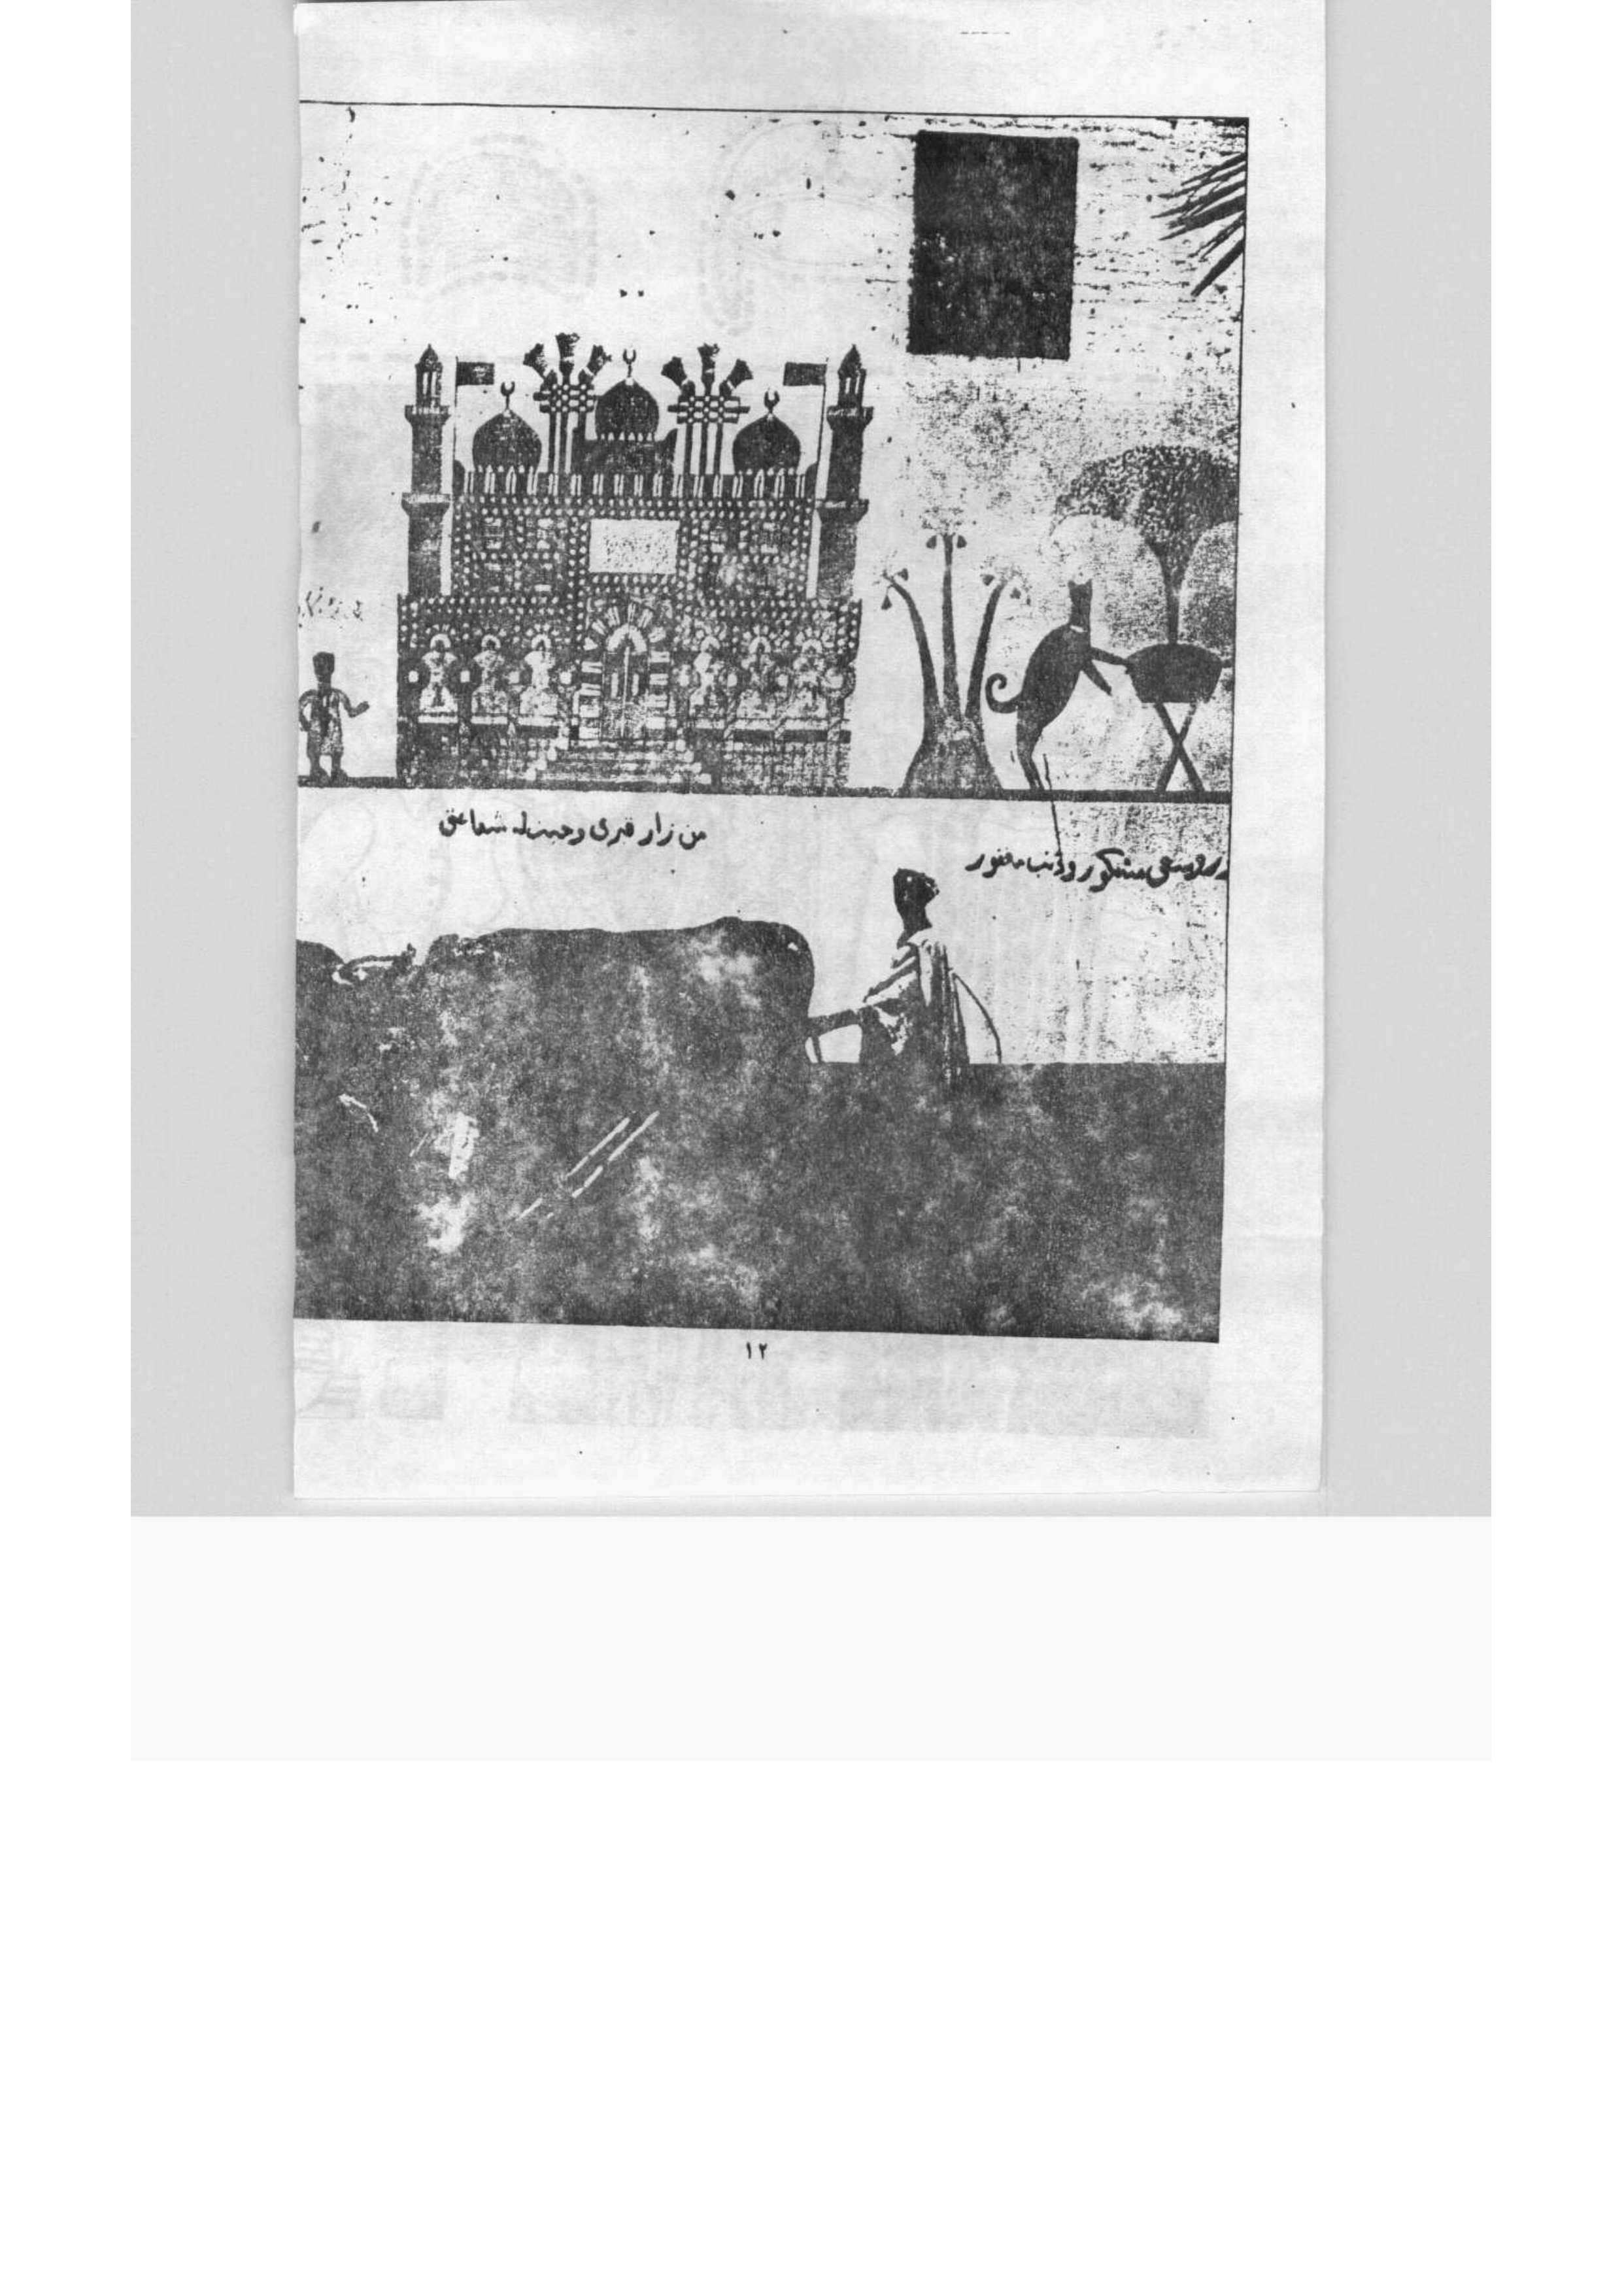 من زار قبرى وجبت له شفاعتى
وسعى مشكور وذنب مغفور
١٢